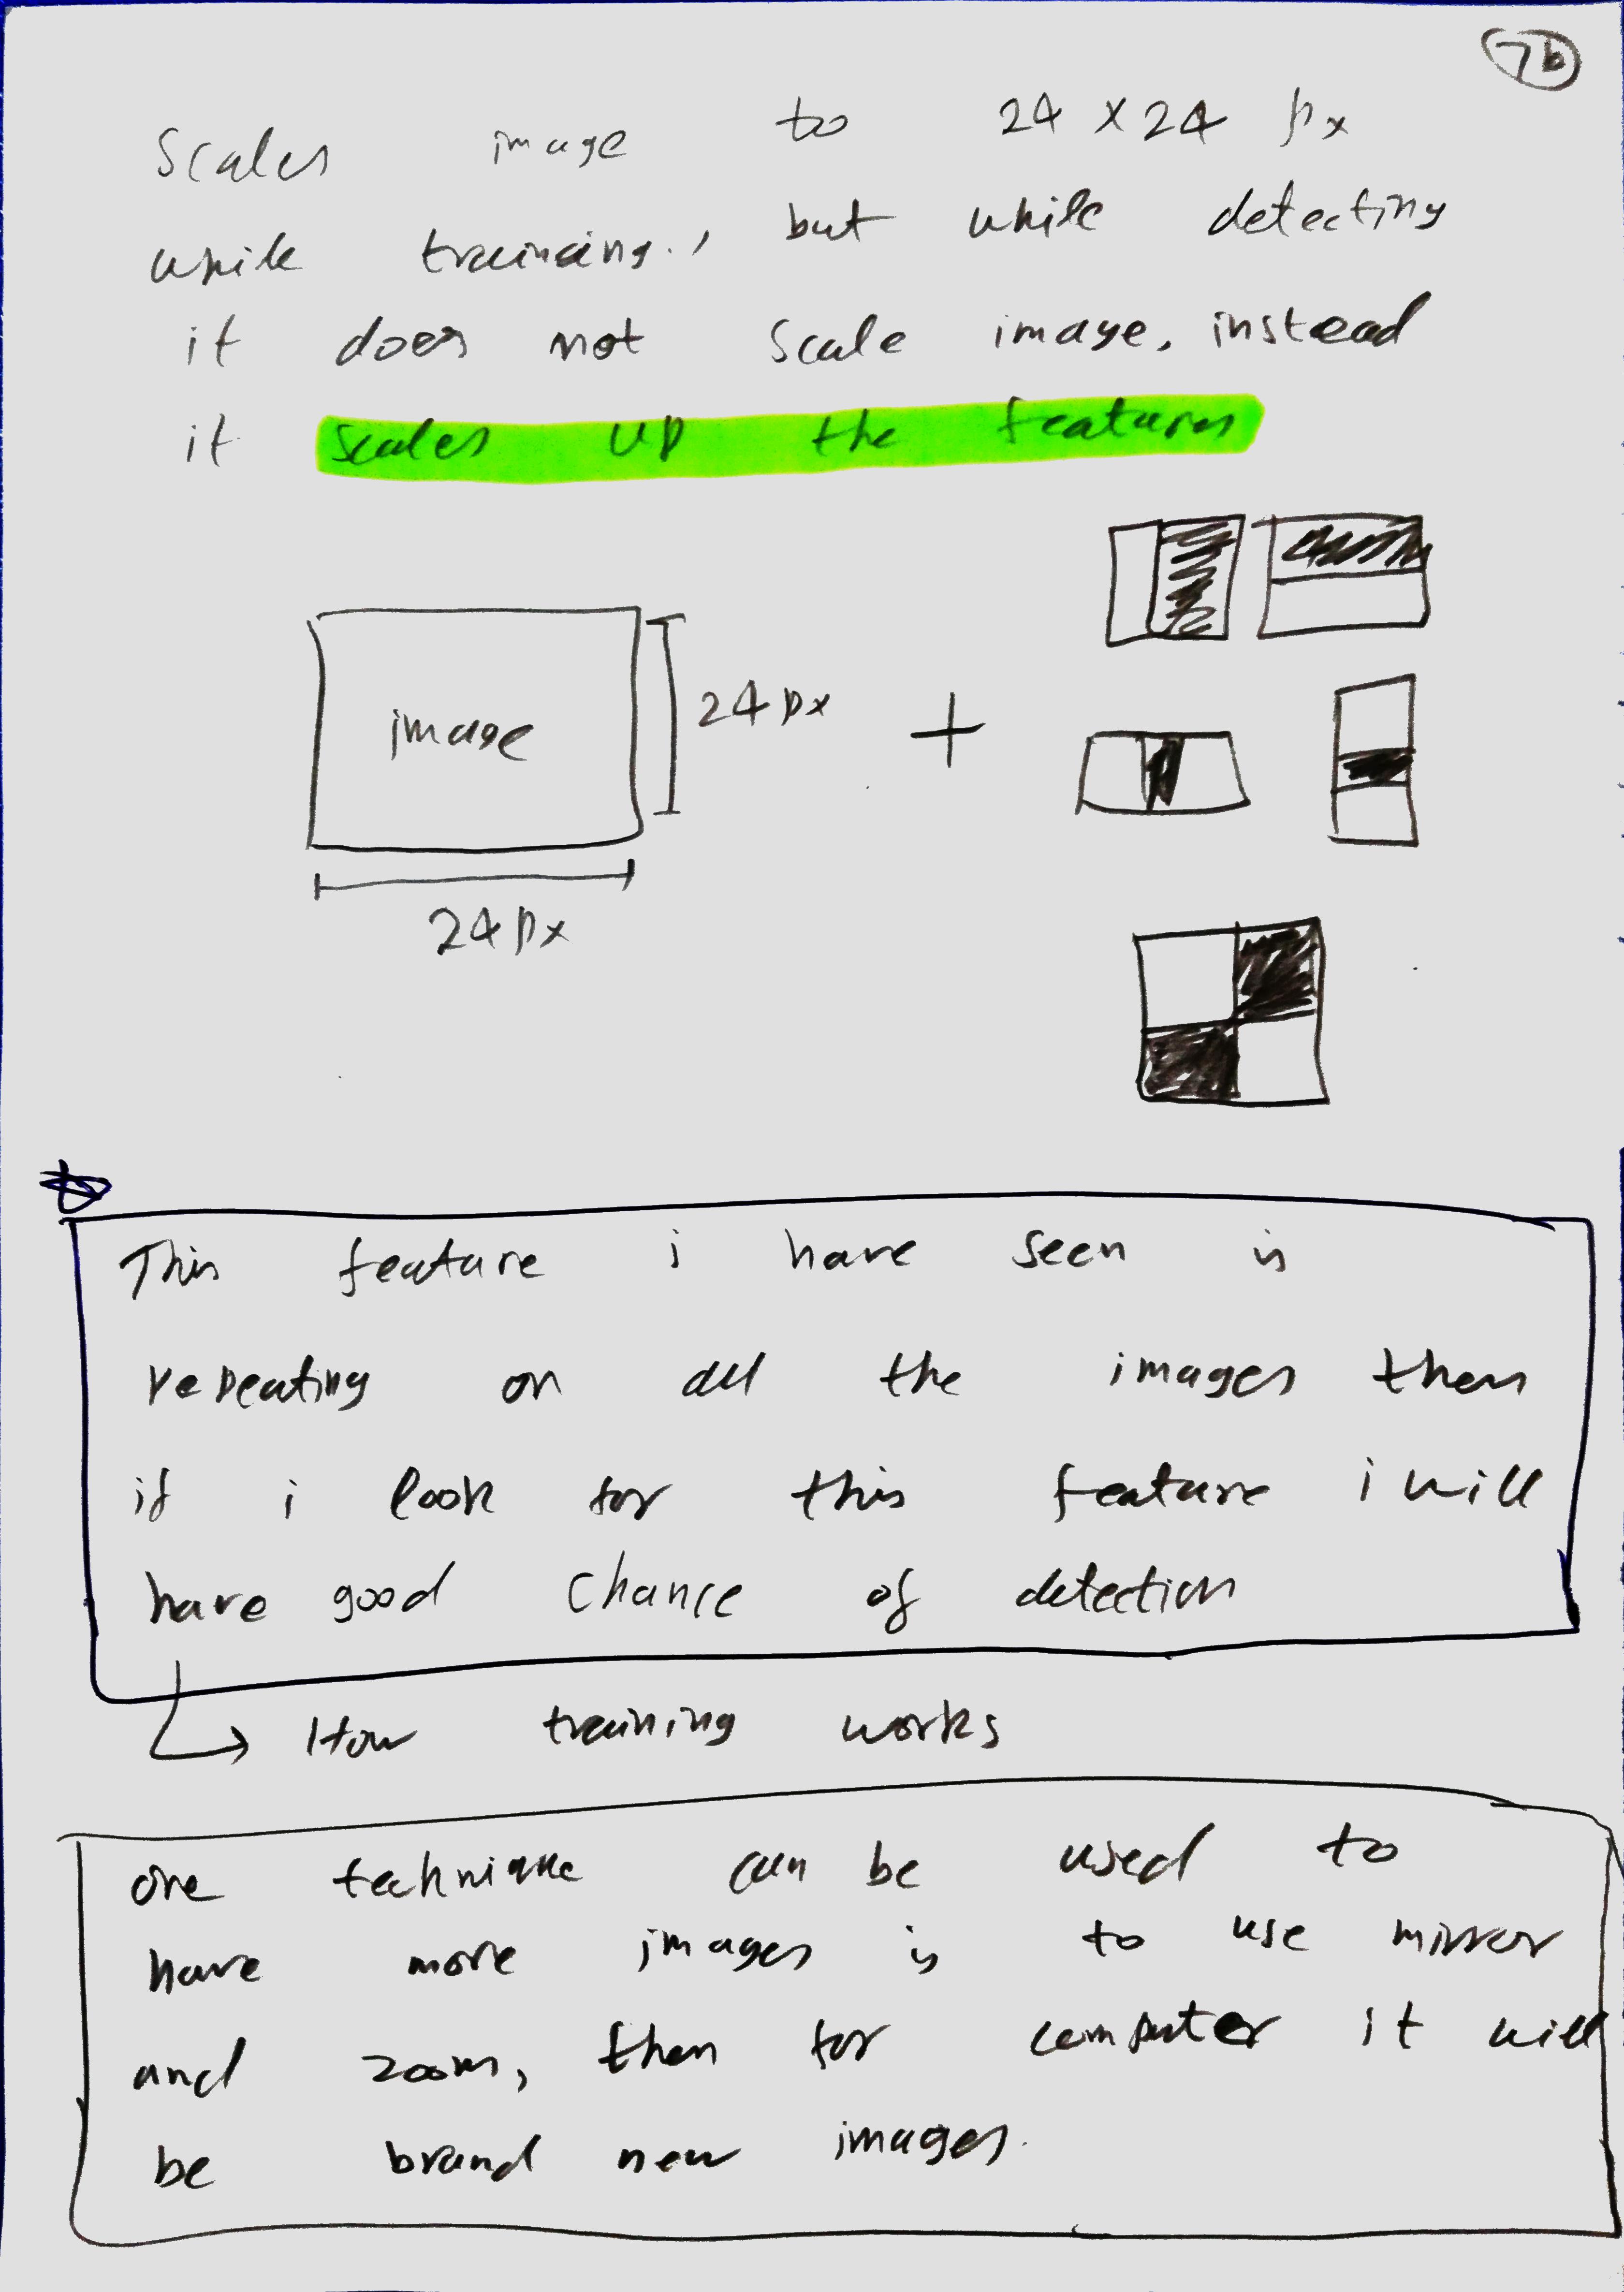 7b
Scales image to 24 x 24 px
while training., but while detecting
it does not scale image, instead
it scales up the features
image
24 px
+
24 px
This feature i have seen is
repeating on all the images then
if i look for this feature i will
have good chance of detection
How training works
one technique can be used to
have more images is to use mirror
and zoom, then for computer it will
be brand new images.